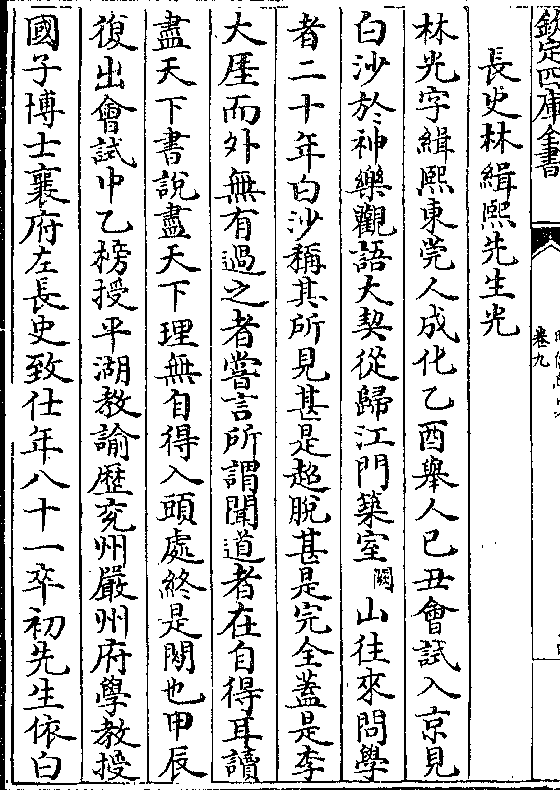 欽定四庫全書
卷九
長史林緝熙先生光
林光字緝熙東莞人成化乙酉舉人已丑會試入京見
白沙於神樂觀語大契從歸江門築室闕山往來問學
者二十年白沙稱其所見甚是超脫甚是完全蓋是李
大厓而外無有過之者嘗言所謂聞道者在自得耳讀
盡天下書說盡天下理無自得入頭處終是閒也甲辰
復出會試中乙榜授平湖教諭歷兖州嚴州府學教授
國子博士襄府左長史致仕年八十一卒初先生依白